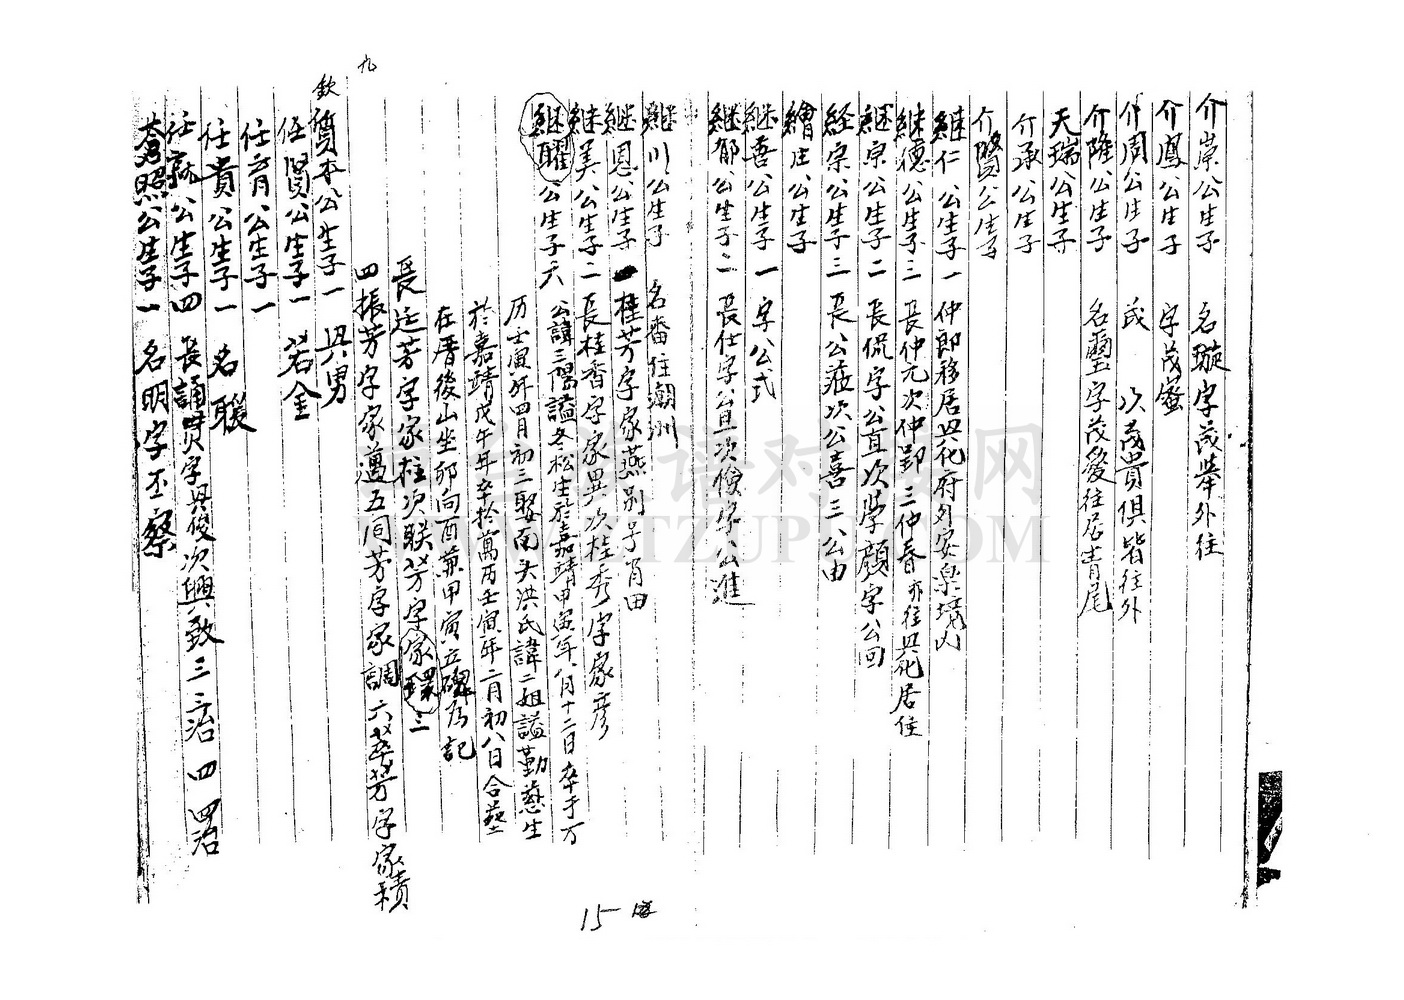 介崇公生子 名璇字茂舉外住
介鳳公生子 字茂蜜
介周公生子 或 次茂貫俱皆往外
介隆公生子 名璽字茂愛往居青尾
天瑞公生子
介承公生子
介賢公生子
継仁公生子一 仲郎移居興化府外安樂境
継德公生子三 長仲元次仲郢三仲春亦往興化居住
継宗公生子二 長侃字公直次學顏字公回
经宗公生子三 長公蒞次公喜三公由
繪庄公生子
継善公生子一 字公式
継郁公生子二 長仕字公旦次儉字公進
継川公生子 名番住潮州
継恩公生子一 桂芳字家燕別子肖田
継美公生子二 長桂香字家異次桂秀字家彦
継曜公生子六 公諱三陽謚冬松生於嘉靖甲寅年八月十二日卒于万
历壬寅年四月初三娶南头洪氏諱二姐謚勤慈生
於嘉靖戊午年卒於萬历壬寅年二月初八日合葬
在厝後山坐卯向酉兼甲寅立碑为記
長廷芳字家柱次联芳字家環三
四振芳字家邁五同芳字家調六萃芳字家積
九
欽質本公生子一 興男
任賢公生子一 若金
任育公生子一
任貴公生子一 名聦
任就公生子四 長誦贯字興俊次興致三三治四四治
蒼照公生子一 名明字丕察
15